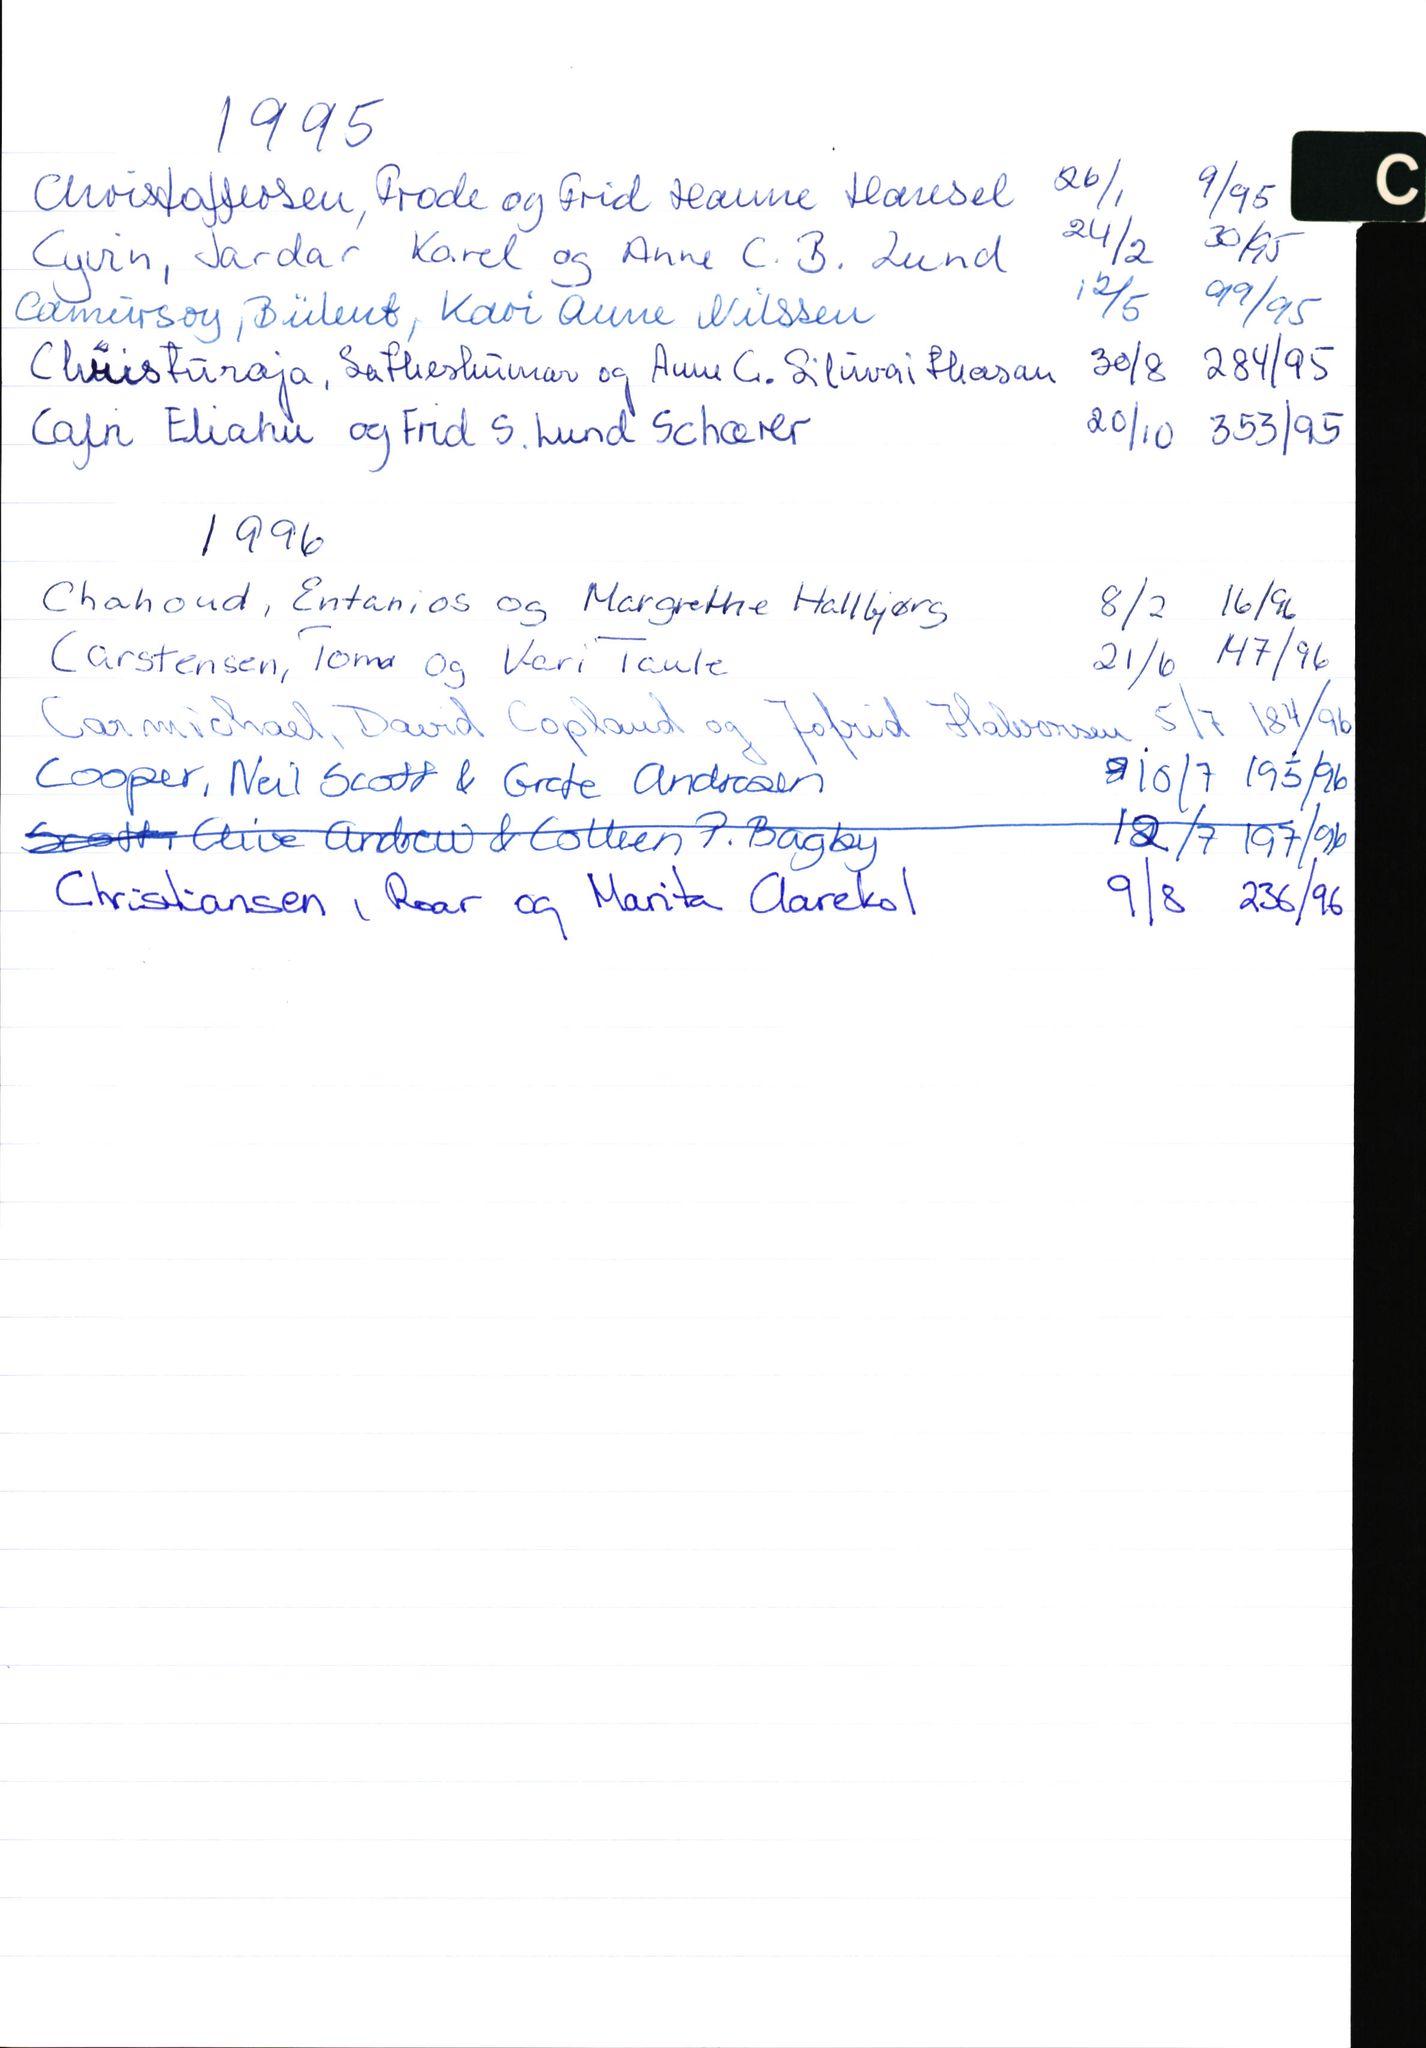 1995
C
Christoffersen, Frode og Frid Hanne Hansel 26/1 9/95
Cyvin, Jardar Karel og Anne C. B. Lund 24/2 30/95
Camürsoy, Bülent, Kari Anne Nilssen 12/5 99/95
Christuraja, Satheskumar og Anne C. Siluvaithasan 30/8 284/95
Cafri Eliahu og Frid S. Lund Schærer 20/10 353/95
1996
Chahoud, Entanios og Margrethe Hallbjørg 8/2 16/96
Carstensen, Tom og Kari Taule 21/6 147/96
Carmichael, David Copland og Jofrid Halvorsen 5/7 184/96
Cooper, Neil Scott & Grete Andresen 10/7 195/96
Scott, Clive Andrew & Colleen P. Bagby 12/7 197/96
Christiansen, Roar og Marita 9/8 236/96